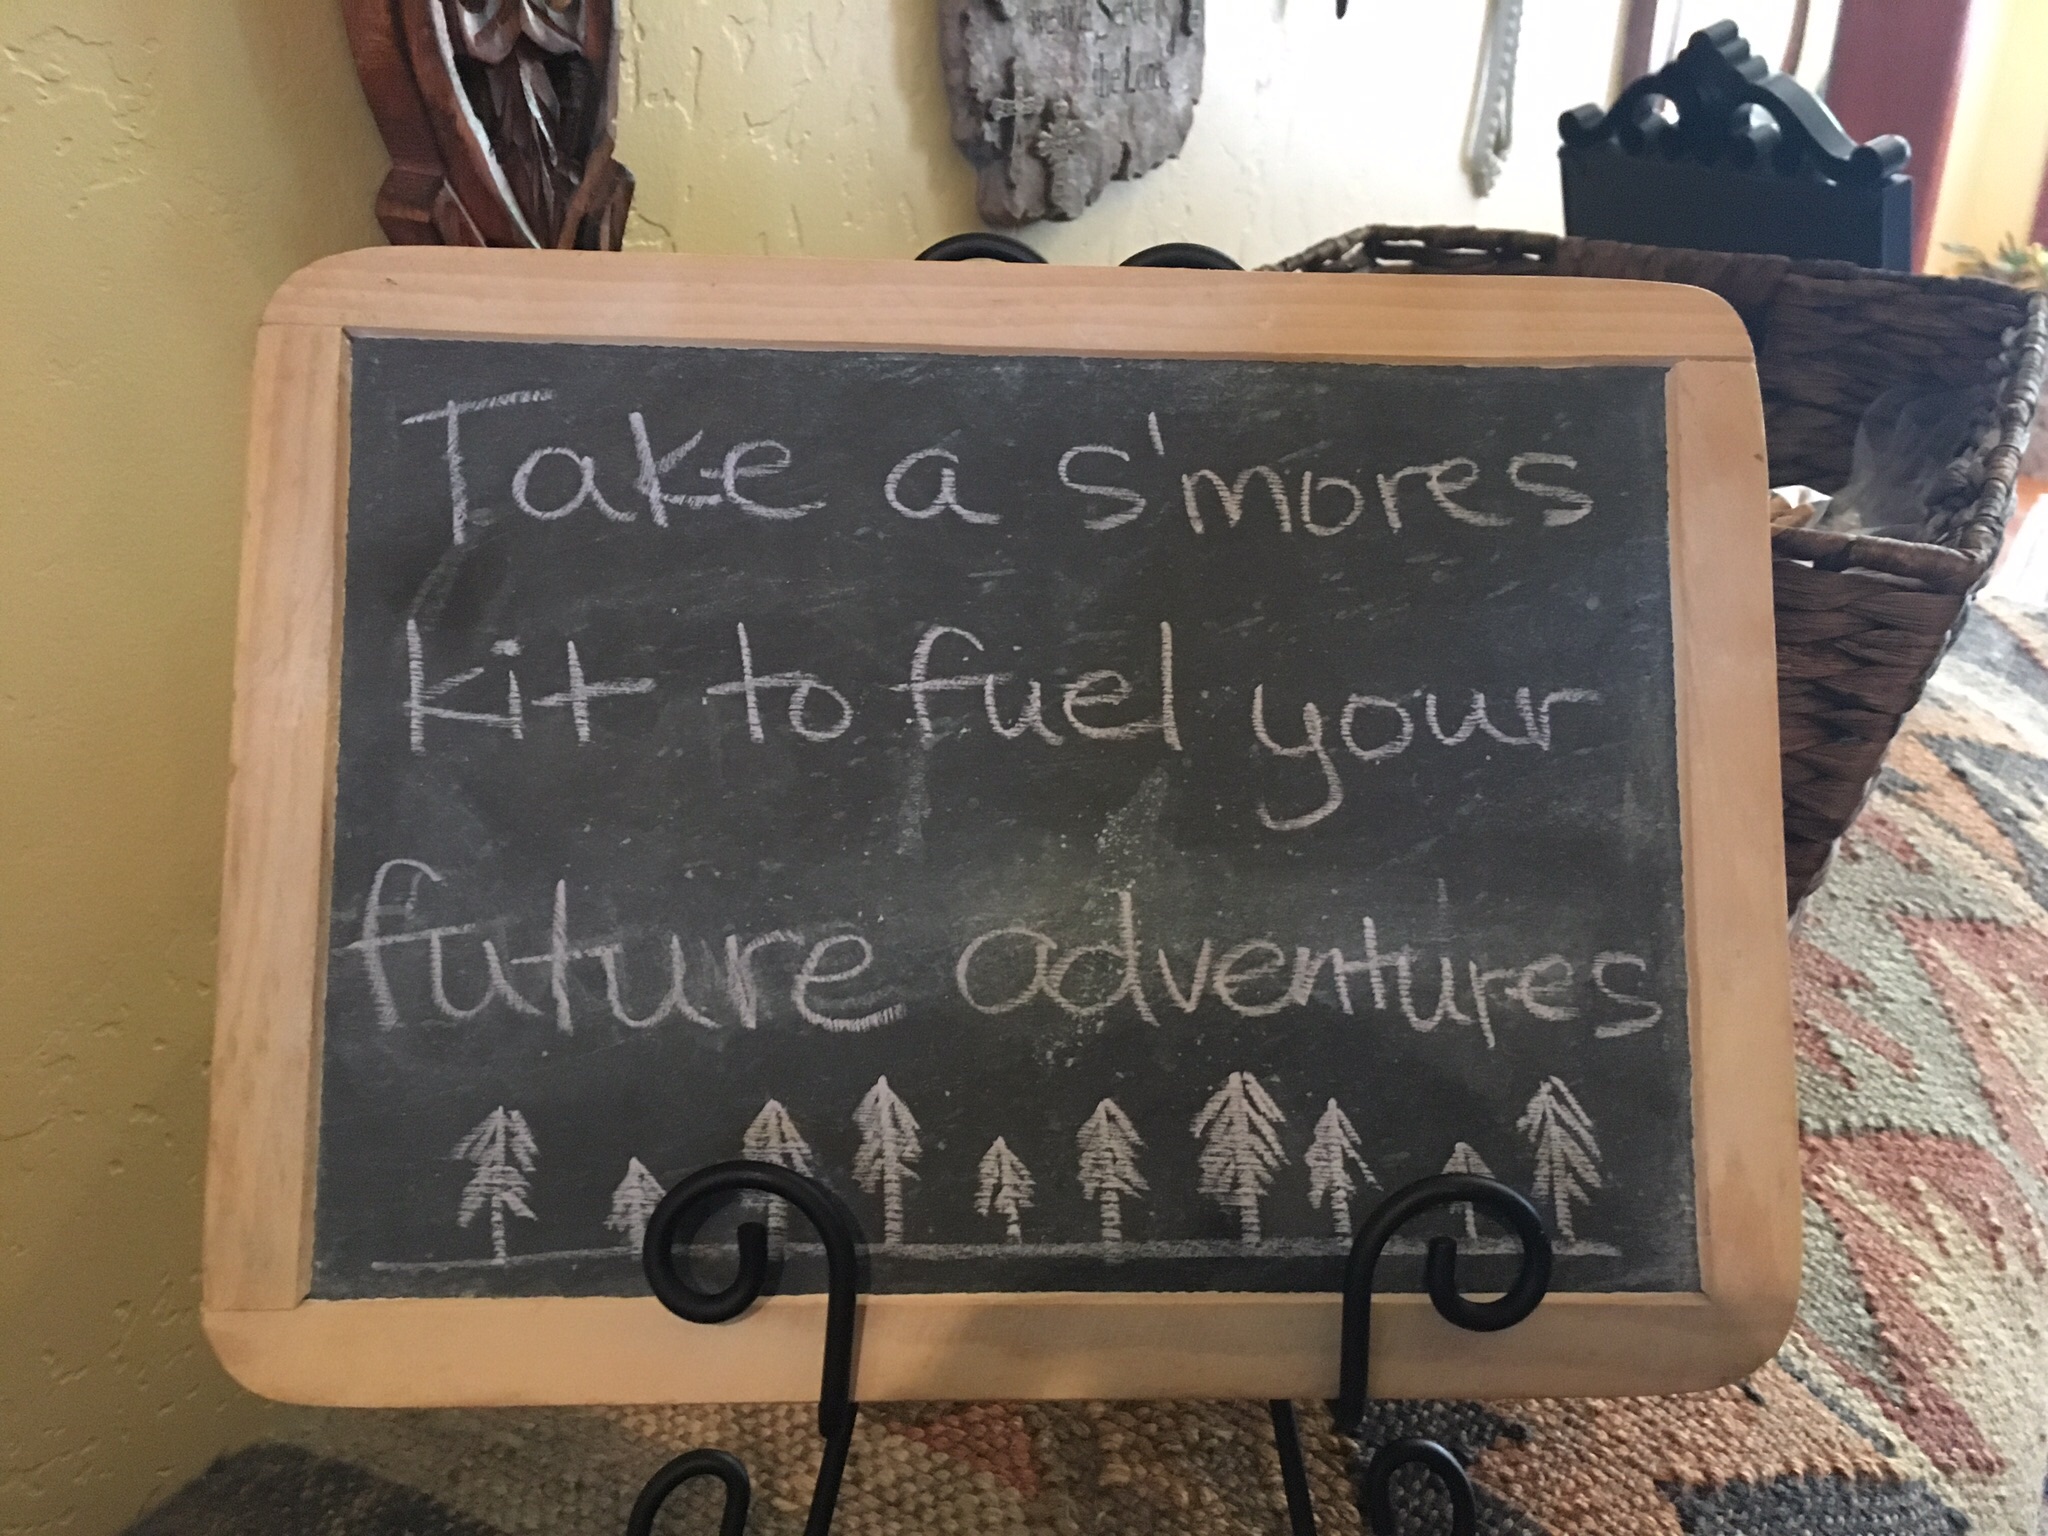 will serve
the Lord
Take a s'mores
kit to fuel your
future adventures